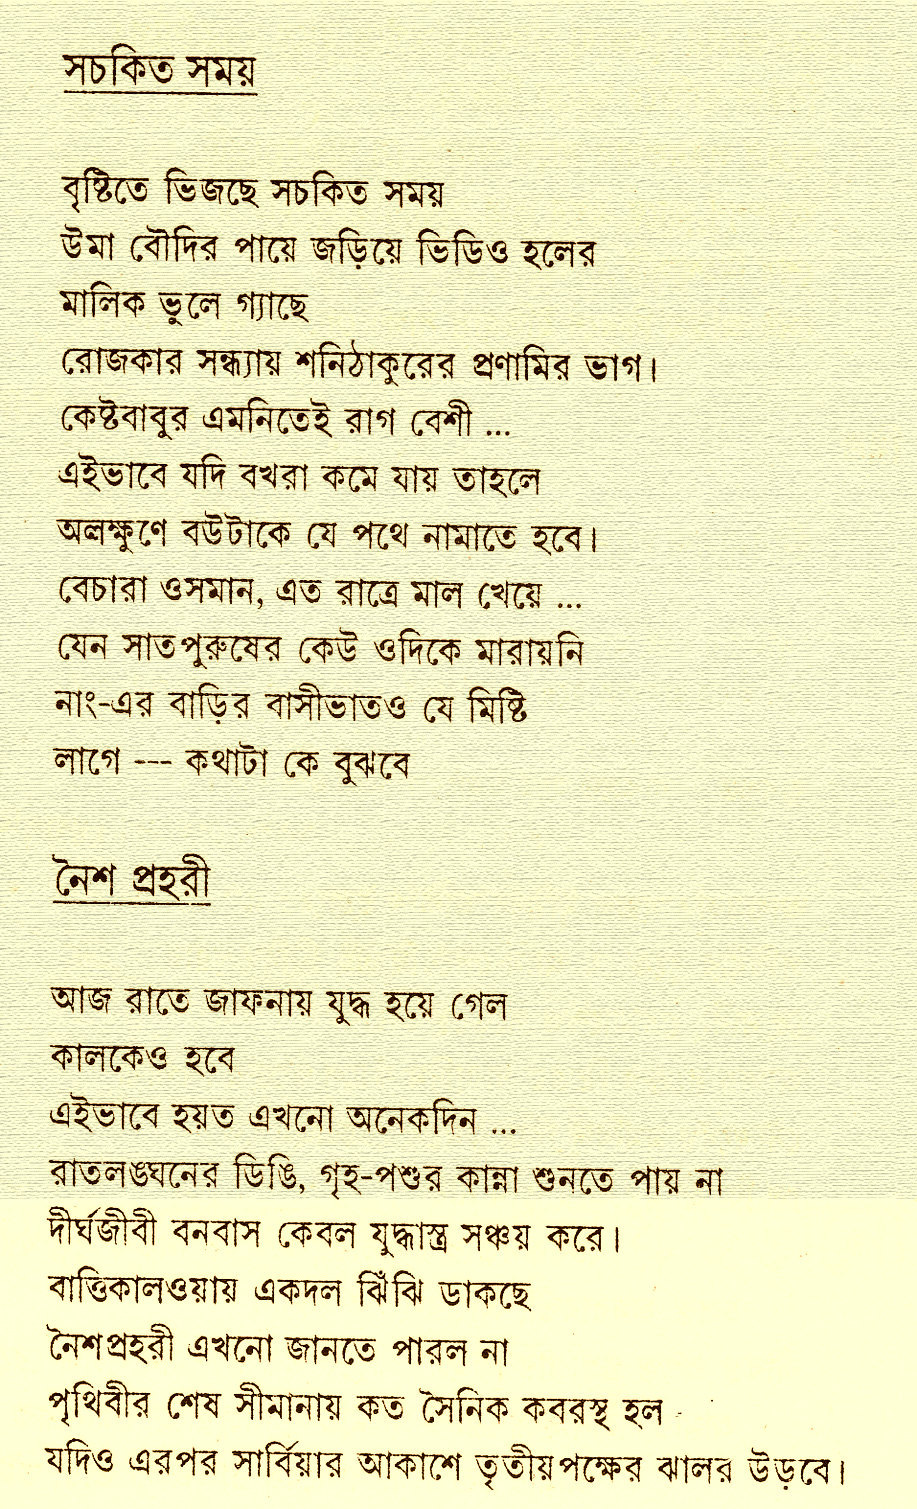 সচকিত সময়
বৃষ্টিতে ভিজছে সচকিত সময়
উমা বৌদির পায়ে জড়িয়ে ভিডিও হলের
মালিক ভুলে গ্যাছে
রোজকার সন্ধ্যায় শনিঠাকুরের প্রণামির ভাগ।
কেষ্টবাবুর এমনিতেই রাগ বেশী ...
এইভাবে যদি বখরা কমে যায় তাহলে
অলক্ষুণে বউটাকে যে পথে নামাতে হবে।
বেচারা ওসমান, এত রাত্রে মাল খেয়ে ...
যেন সাতপুরুষের কেউ ওদিকে মারায়নি
নাং-এর বাড়ির বাসীভাতও যে মিষ্টি
লাগে --- কথাটা কে বুঝবে
নৈশ প্রহরী
আজ রাতে জাফনায় যুদ্ধ হয়ে গেল
কালকেও হবে
এইভাবে হয়ত এখনো অনেকদিন ...
রাতলঙ্ঘনের ডিঙি, গৃহ-পশুর কান্না শুনতে পায় না
দীর্ঘজীবী বনবাস কেবল যুদ্ধাস্ত্র সঞ্চয় করে।
বাত্তিকালওয়ায় একদল ঝিঁঝি ডাকছে
নৈশপ্রহরী এখনো জানতে পারল না
পৃথিবীর শেষ সীমানায় কত সৈনিক কবরস্থ হল
যদিও এরপর সার্বিয়ার আকাশে তৃতীয়পক্ষের ঝালর উড়বে।